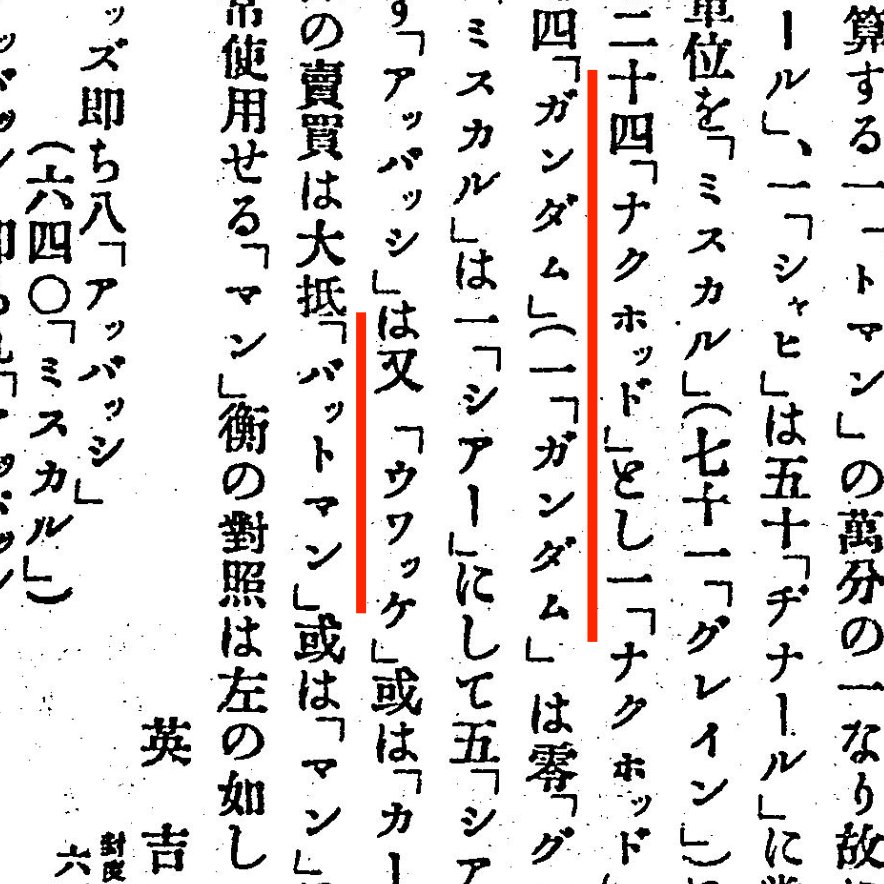 算する一「トマン」の萬分の一なり故
ール」、一「シャヒ」は五十「ヂナール」に
單位を「ミスカル」(七十一「グレイン」)
二十四「ナクホッド」とし一「ナクホッド
四「ガンダム」(一「ガンダム」は零「グ
ミスカル」は一「シアー」にして五「シア
す「アッバッシ」は又「ウワッケ」或は「カー
の賣買は大抵「バットマン」或は「マン」
常使用せる「マン」衡の對照は左の如し
英吉
封度
ッズ即ち八「アッバッシ」
六
(六四〇「ミスカル」)